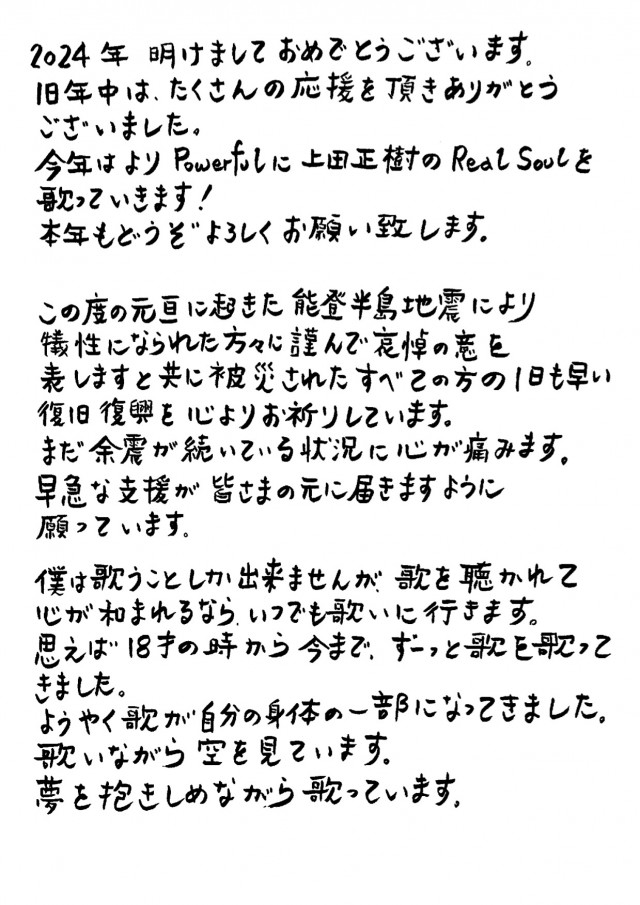 2024年 明けましておめでとうございます。
旧年中は、たくさんの応援を頂きありがとう
ございました。
今年はより Powerfulに 上田正樹のReal Soulを
歌っていきます!
本年もどうぞよろしくお願い致します。
この度の元旦に起きた能登半島地震により
犠牲になられた方々に謹んで哀悼の意を
表しますと共に被災されたすべての方の1日も早い
復旧復興を心よりお祈りしています。
まだ余震が続いている状況に心が痛みます。
早急な支援が皆さまの元に届きますように
願っています。
僕は歌うことしか出来ませんが、歌を聴かれて
心が和まれるなら、いつでも歌いに行きます。
思えば18才の時から今まで、ずーっと歌を歌って
きました。
ようやく歌が自分の身体の一部になってきました。
歌いながら空を見ています。
夢を抱きしめながら歌っています。